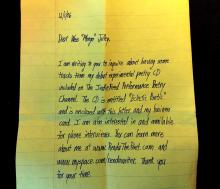 Dear Miss "Mongo" Jolley,
I am writing to you to inquire about having some
tracks from my debut experimental poetry CD
included on The Indiefeed Performance Poetry
Channel. The CD is entitled "Eclectic Poetic"
and is enclosed with this letter and my business
card. I am also interested in and available
for phone interviews. You can learn more
about me at www.
.com and
www.myspace.com/
Thank you
for your time.